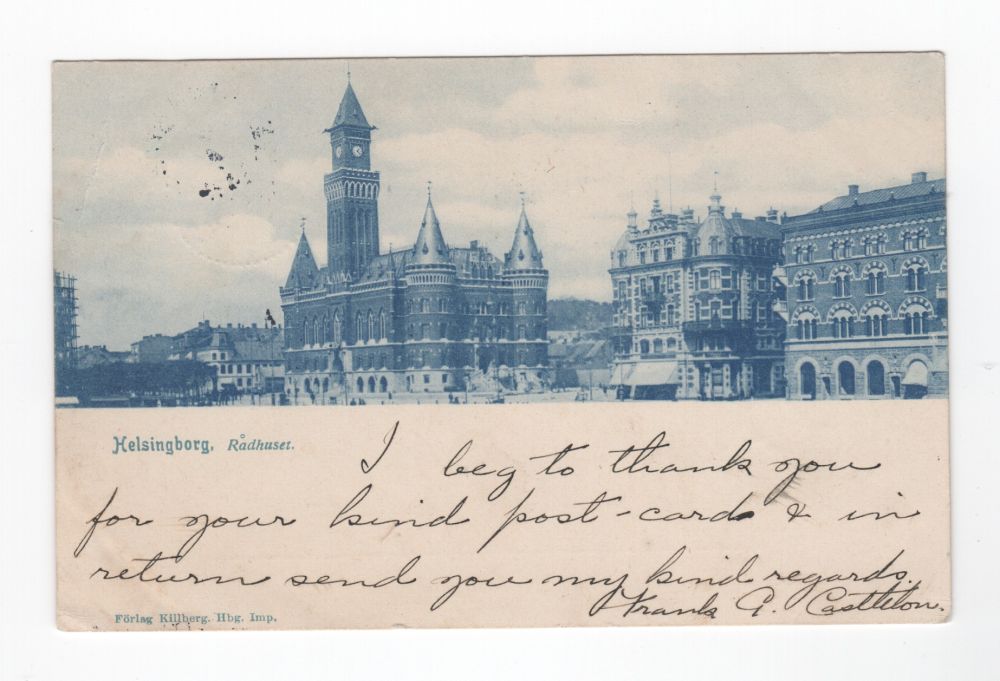 Helsingborg, Rådhuset.
I beg to thank you
for your kind post-card & in
return send you my kind regards.
Frank G. Castleton.
Förlag Killberg. Hbg. Imp.